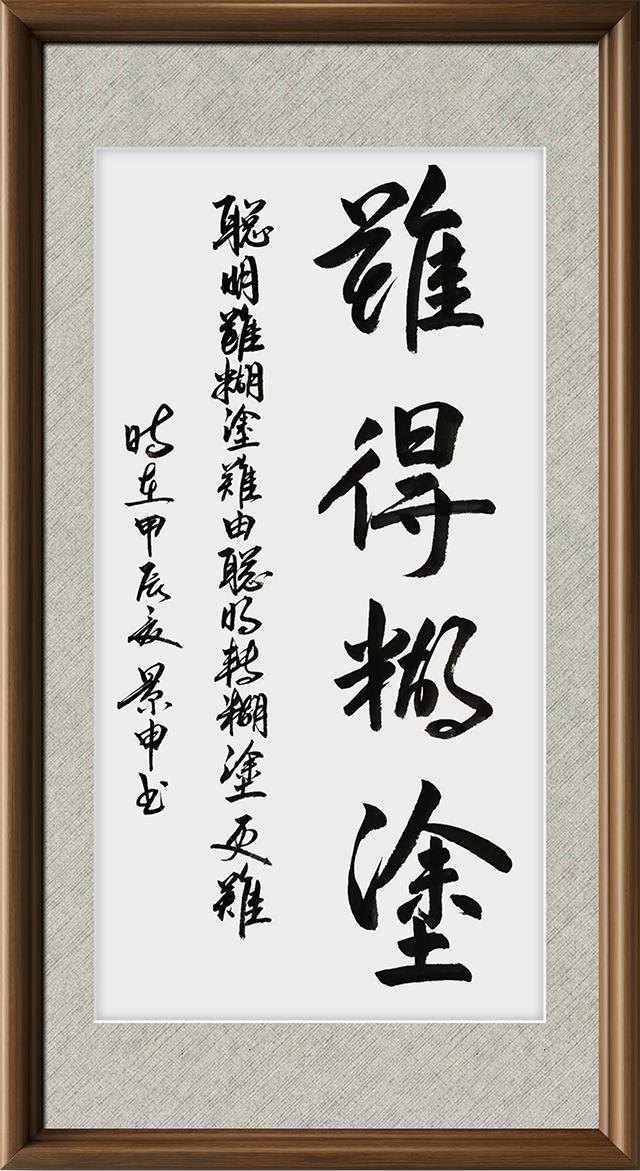 難得糊塗
聰明難糊塗難由聰明轉糊塗更難
時在甲辰夏景申书